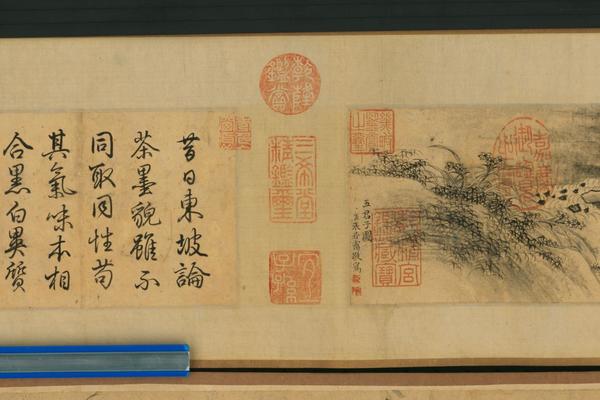 嘉慶御覽之寶
五君子圖
乾隆鑑賞
三希堂精鑑璽
宜子孫
昔日東坡論
茶墨貌雖不
同取同性苟
其氣味本相
合黑白異質